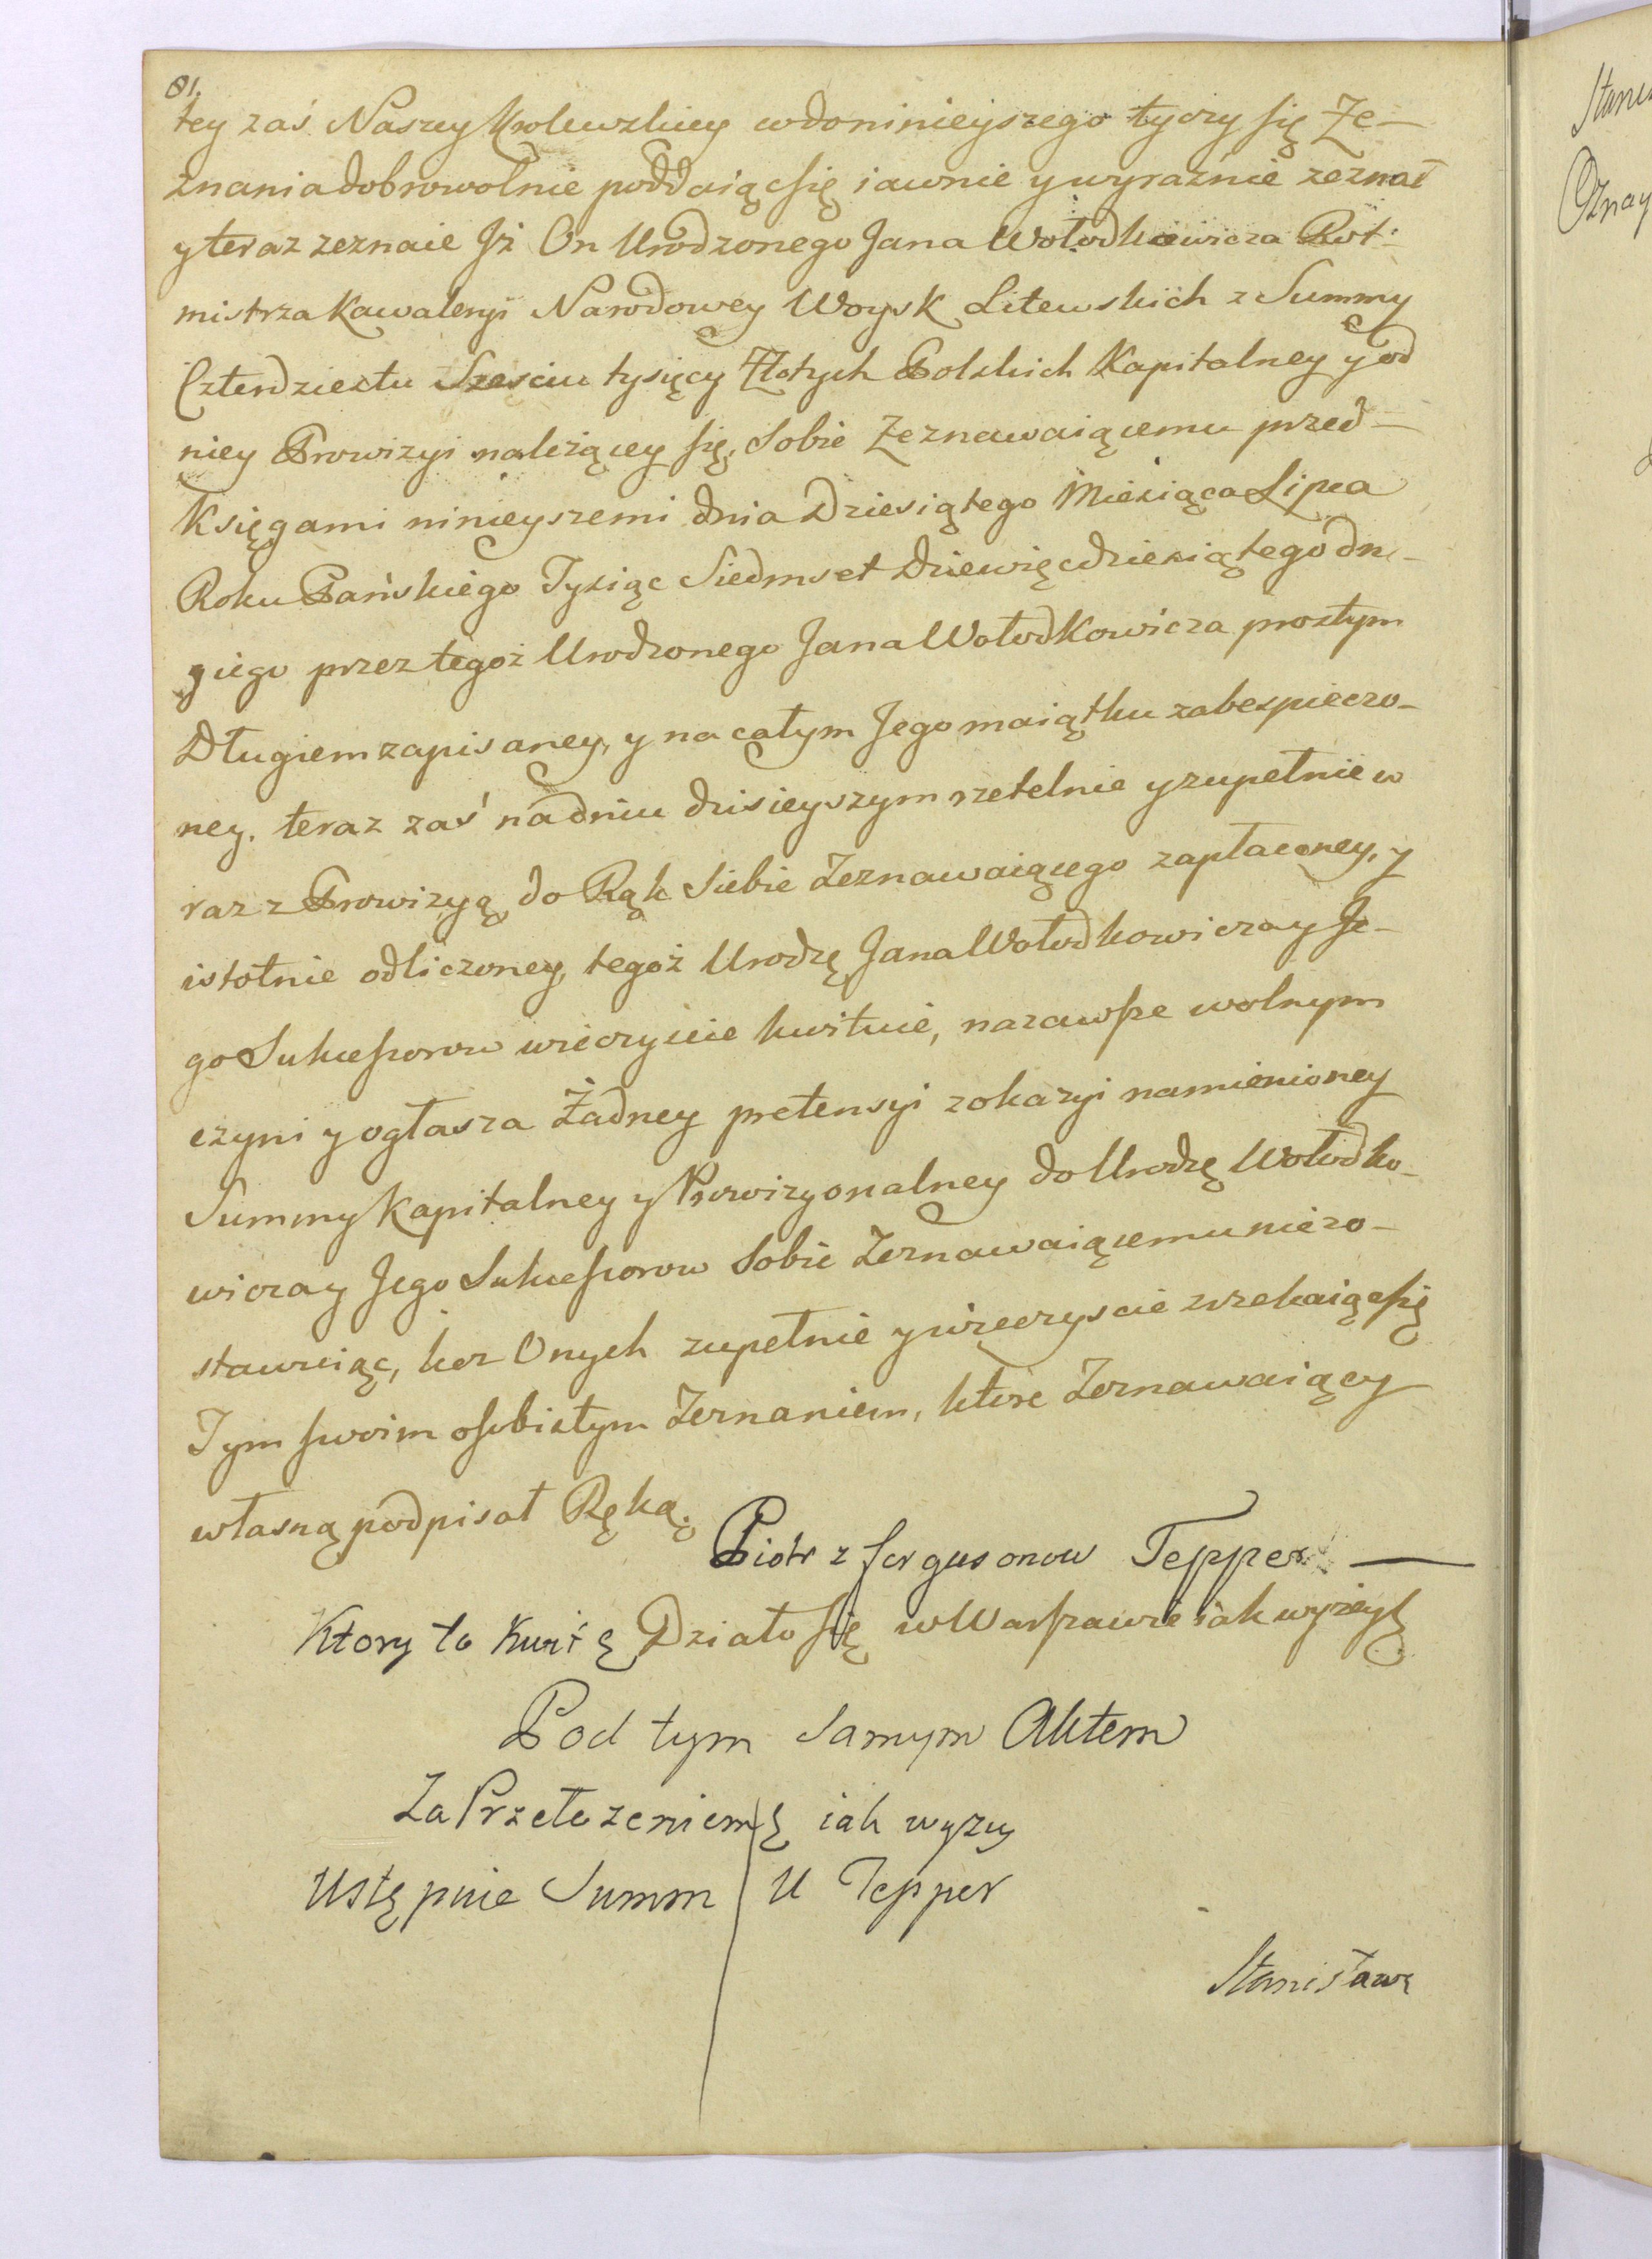 81.
tey zaś Naszey Krolewzkiey codoninieyszego tyczy się Ze-
znania dobrowolnie poddaiąc się iawnie y wyraźnie zeznał
y teraz zeznaie Jż On Urodzonego Jana Wołodkowicza Rot-
mistrza Kawaleryi Narodowey Woysk Litewskich z Summy
Czterdziestu Sześciu tysięcy Złotych Polskich Kapitalney y od
niey Prowizyi należącey się, Sobie Zeznawaiącemu przed-
Księgami ninieyszemi dnia Dziesiątego Miesiąca Lipca
Roku Pańskiego Tysiąc Siedmset Dziewięcdziesiątego dru-
giego przez tegoż Urodzonego Jana Wołodkowicza prostym
Długiem zapisaney, y na całym Jego maiątku zabespieczo-
ney. teraz zaś nadniu dzisieyszym rzetelnie y zupełnie w
raz z Prowizyą do Rąk Siebie Zeznawaiącego zapłaconey, y
istotnie odliczoney, tegoż Urodzę Jana Wołodkowicza y Je-
go Sukcessorow wieczyscie kwituie, nazawsze wolnym
czyni y ogłasza Żadney pretensyi zokazyi namienioney
Summy Kapitalney y Prowizyonalney do Urodzę Wołodko-
wicza y Jego Sukcessorow Sobie Zeznawaiącemu niezo-
stawuiąc, lecz Onych zupełnie y wieczyscie zrzekaiąc się
Tym swoim osobistym Zeznaniem, ktore Zeznawaiący
własną podpisał Ręką.
Piotr z fergusonow Tepper
Ktory to Kwit ę Działo się w Warszawie iak wyżey ę
Pod tym Samym Aktem
Za Przełożeniem ę iak wyzey
Ustępuie Summ U Tepper
Stanisław ę